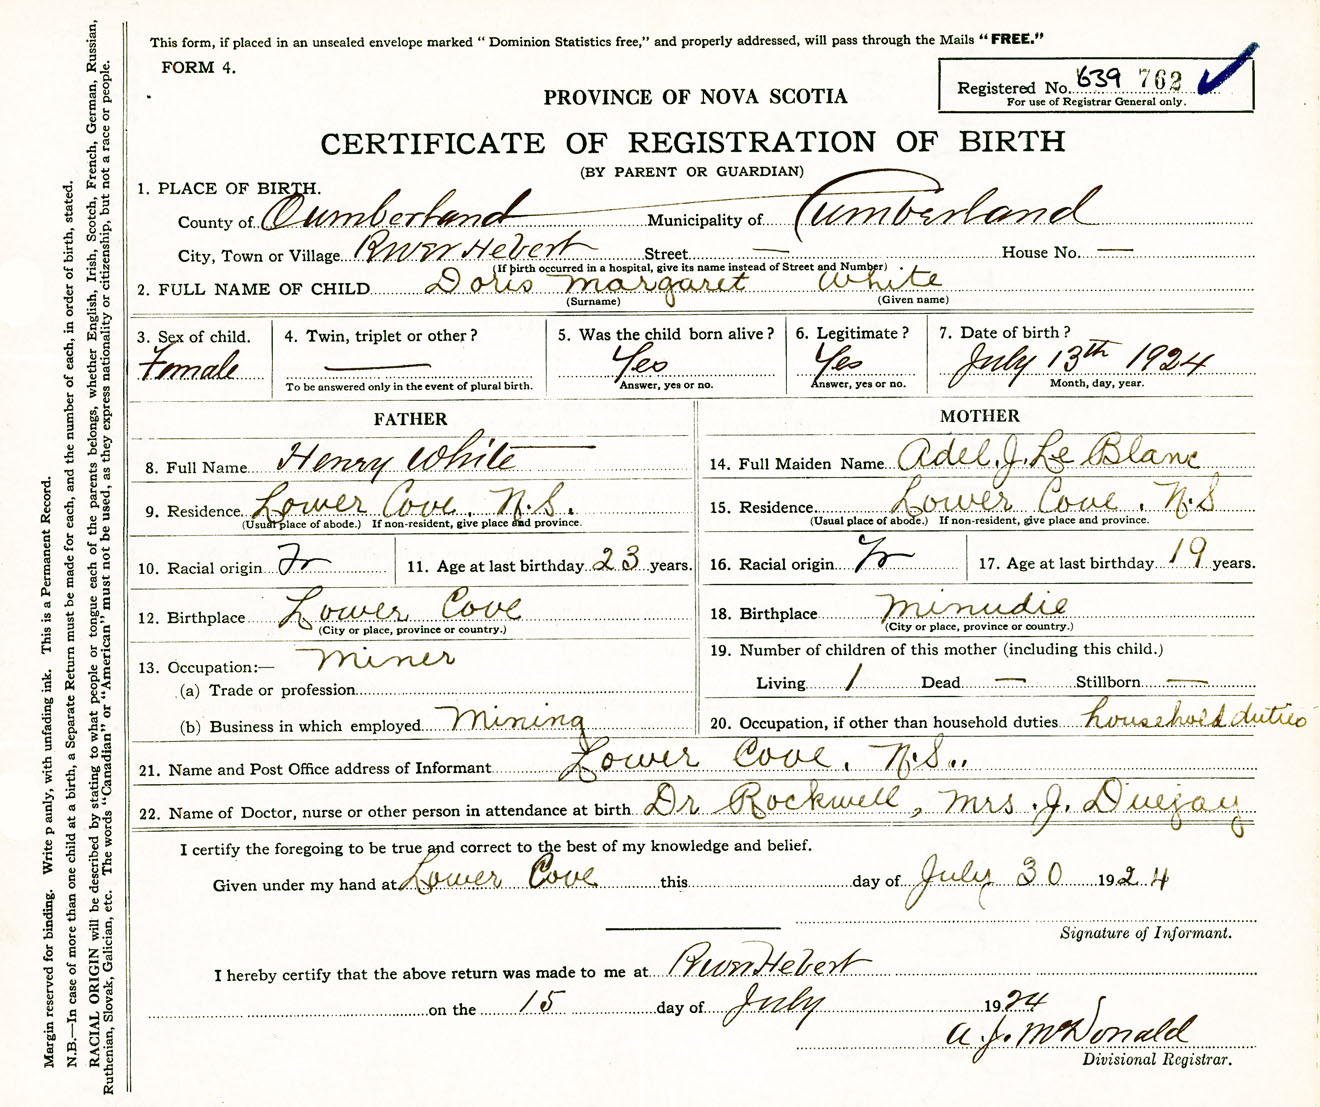 This form, if placed in an unsealed envelope marked “ Dominion Statistics free,” and properly addressed, will pass through the Mails “ FREE.”
FORM 4.
Registered No. 639 762
For use of Registrar General only.
PROVINCE OF NOVA SCOTIA
CERTIFICATE OF REGISTRATION OF BIRTH
(BY PARENT OR GUARDIAN)
1. PLACE OF BIRTH.
County of Cumberland Municipality of Cumberland
City, Town or Village River Hebert Street — House No. —
(If birth occurred in a hospital, give its name instead of Street and Number)
2. FULL NAME OF CHILD Doris Margaret White
(Surname) (Given name)
3. Sex of child. 4. Twin, triplet or other ? 5. Was the child born alive ? 6. Legitimate ? 7. Date of birth ?
Female — Yes Yes July 13th 1924
To be answered only in the event of plural birth. Answer, yes or no. Answer, yes or no. Month, day, year.
FATHER
8. Full Name Henry White
9. Residence Lower Cove. N.S.
(Usual place of abode.) If non-resident, give place and province.
10. Racial origin Fr 11. Age at last birthday 23 years.
12. Birthplace Lower Cove
(City or place, province or country.)
13. Occupation:— Miner
(a) Trade or profession
(b) Business in which employed Mining
MOTHER
14. Full Maiden Name Adel. J. Le Blanc
15. Residence Lower Cove. N.S
(Usual place of abode.) If non-resident, give place and province.
16. Racial origin Fr 17. Age at last birthday 19 years.
18. Birthplace Minudie
(City or place, province or country.)
19. Number of children of this mother (including this child.)
Living 1 Dead — Stillborn —
20. Occupation, if other than household duties household duties
21. Name and Post Office address of Informant Lower Cove. N.S..
22. Name of Doctor, nurse or other person in attendance at birth Dr Rockwell, Mrs. J.
I certify the foregoing to be true and correct to the best of my knowledge and belief.
Given under my hand at Lower Cove this day of July 30 1924
Signature of Informant.
I hereby certify that the above return was made to me at River Hebert
on the 15 day of July 1924
A. J. McDonald
Divisional Registrar.
Margin reserved for binding. Write p ainly, with unfading ink. This is a Permanent Record.
N.B.—In case of more than one child at a birth, a Separate Return must be made for each, and the number of each, in order of birth, stated.
RACIAL ORIGIN will be described by stating to what people or tongue each of the parents belongs, whether English, Irish, Scotch, French, German, Russian,
Ruthenian, Slovak, Galician, etc. The words “Canadian” or “American” must not be used, as they express nationality or citizenship, but not a race or people.